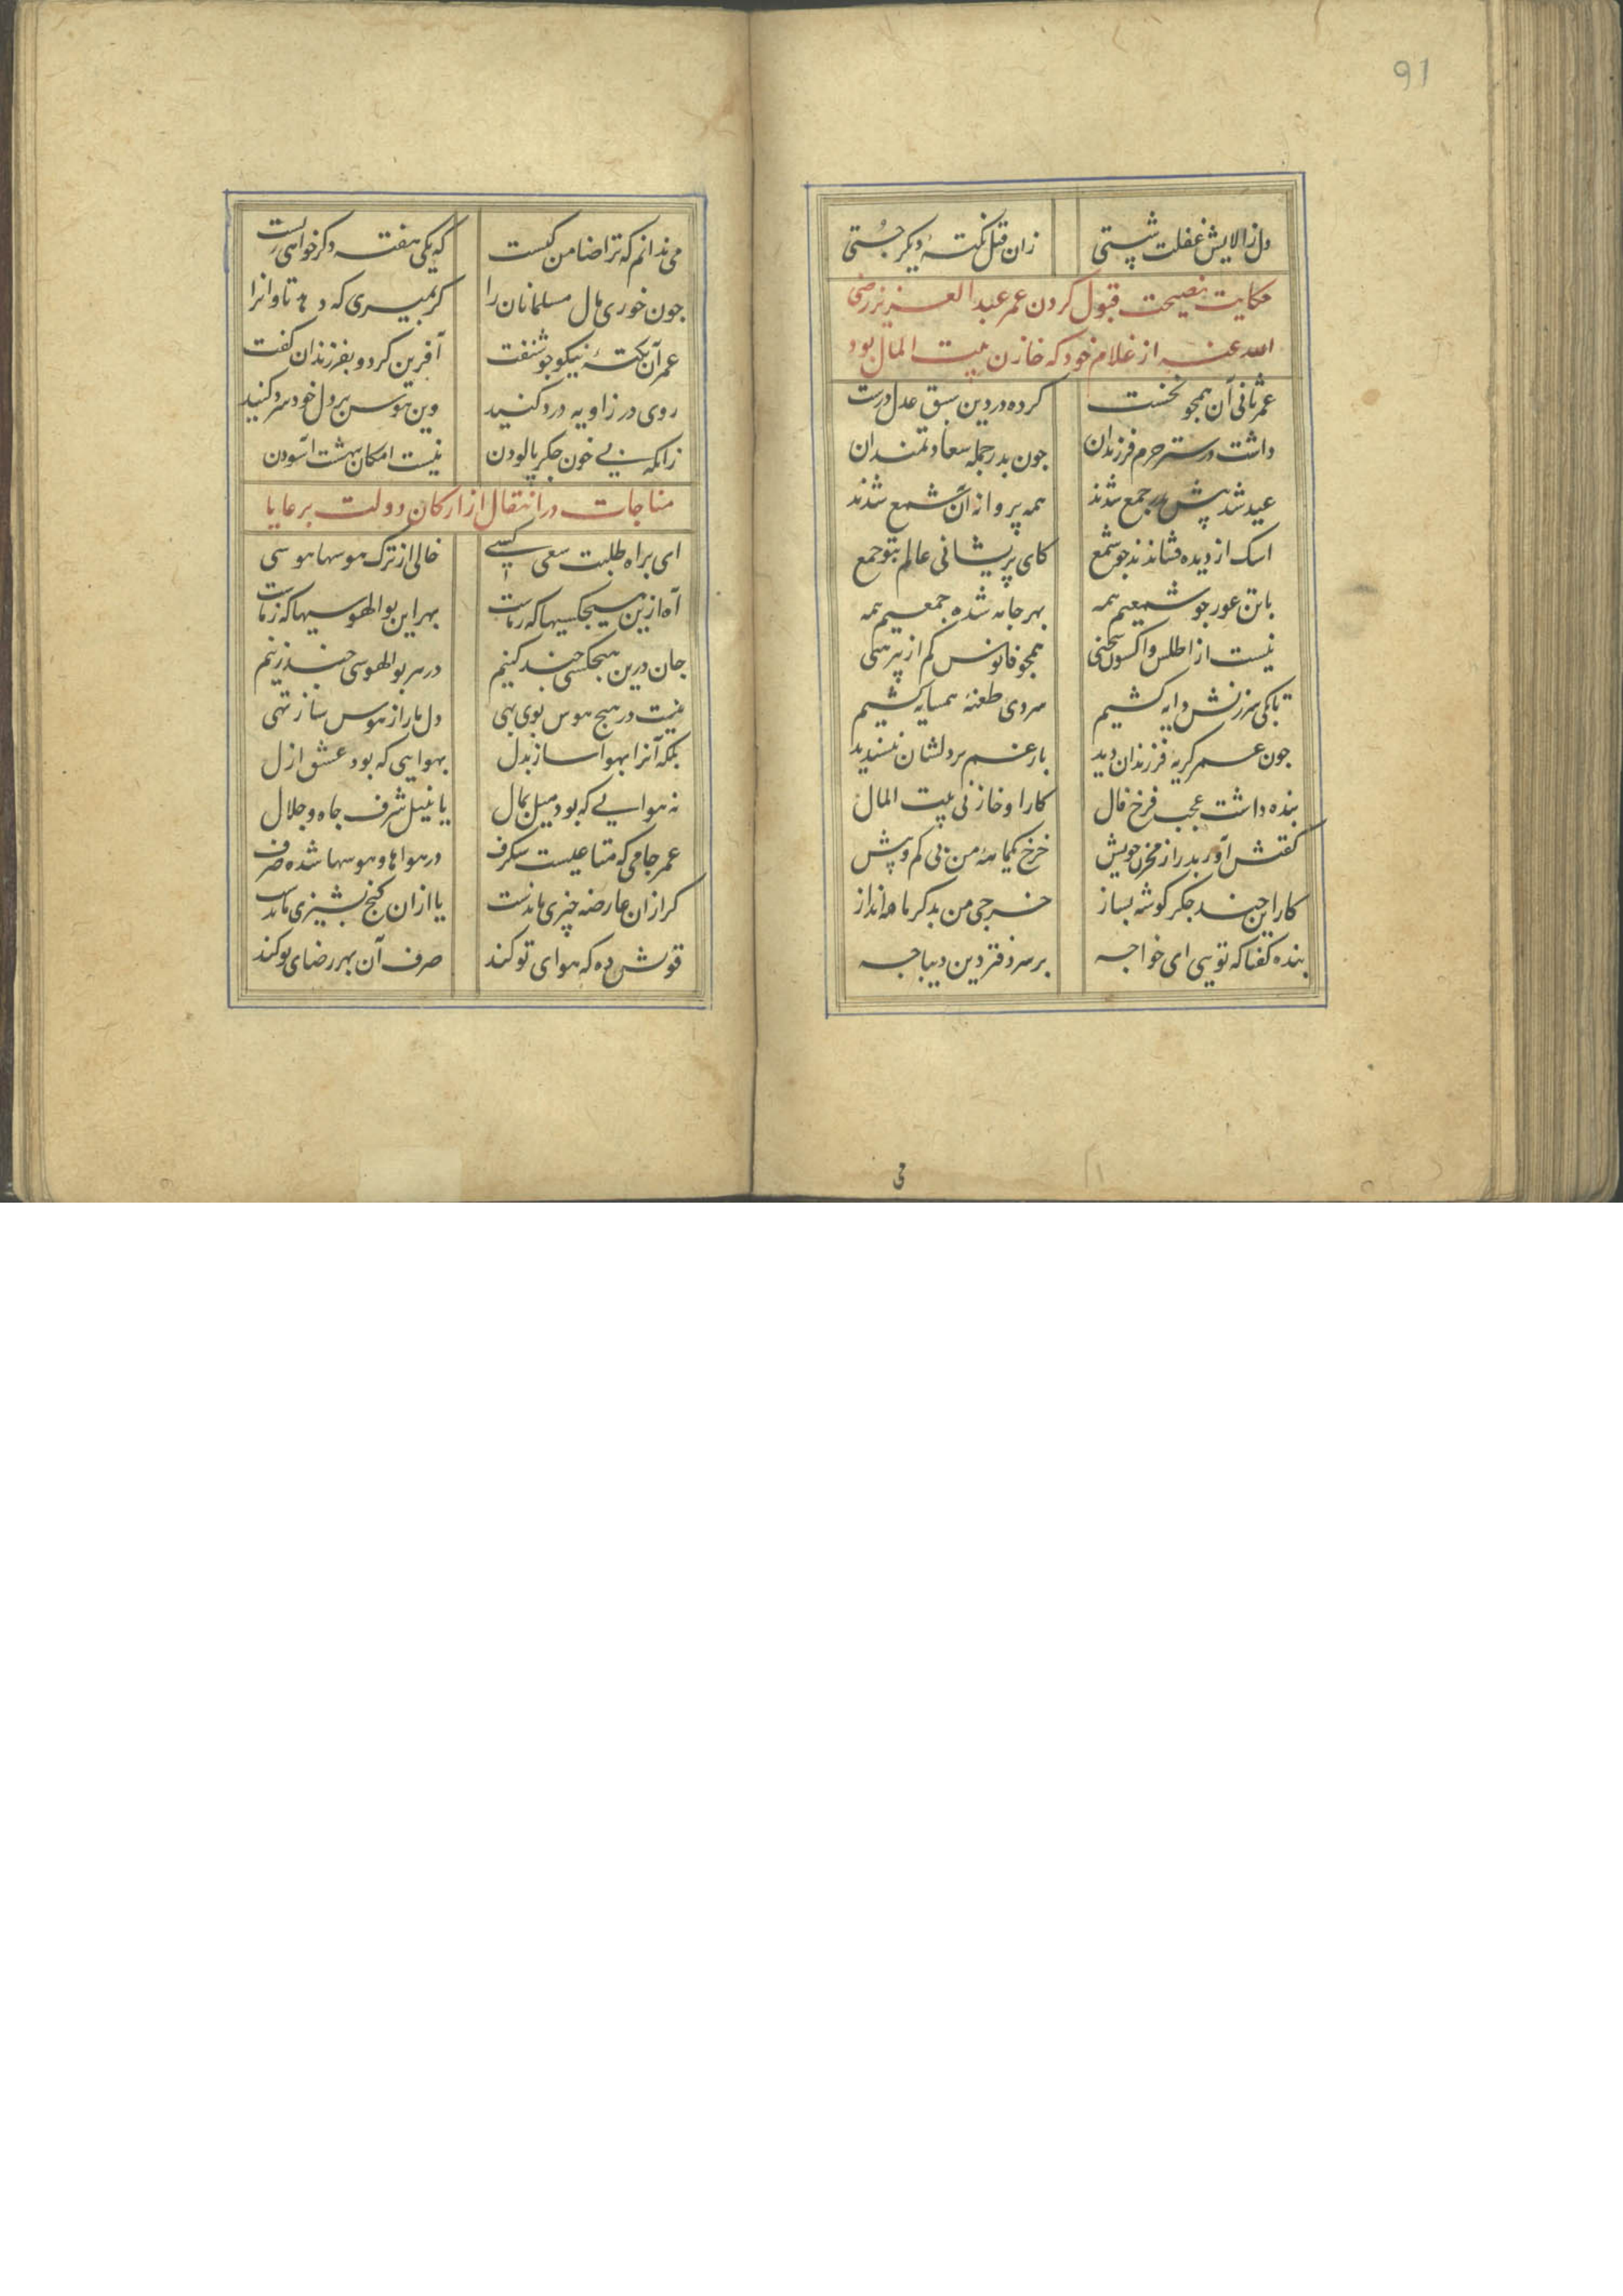 91
دل ز الایش غفلت شستی زان قبل نکتهٔ دیکر جُستی
حکایت نصیحت قبول کردن عمر عبد العزیز رضی
الله عنه از غلام خود که خازن بیت المال بود
عمر ثانی آن همجو نخست کرده در دین سبق عدل درست
داشت در ستر حرم فرزندان جون بدر جمله سعادتمندان
عید شد پیش بدر جمع شدند همه پروانهٔ آن شمع شدند
اسک از دیده فشاندند جو شمع کای پریشانی عالم بتو جمع
با تن عور جو شمعیم همه بهر جامه شده جمعیم همه
نیست از اطلس و اکسون سخنی همجو فانوس کم از پیرهنی
تا بکی سرزنش دایه کشیم سردی طعنهٔ همسایه کشیم
جون عمر کریهٔ فرزندان دید بار غم بر دلشان نپسندید
بنده داشت عجب فرخ فال کار او خازنی بیت المال
کفتش آور بدر از مخزن خویش خرج یکماههٔ من بی کم و بیش
کار این جند جکر کوشه بساز خرجی من بدکر ماه انداز
بنده کفتا که تویی ای خواجه بر سر دفتر دین دیباجه
می
می ندانم که ترا ضامن کیست که یکی هفته دکر خواهی زیست
جون خوری مال مسلمانان را کر بمیری که دهد تاوانرا
عمر آن نکتهٔ نیکو جو شنفت آفرین کرد و بفرزندان کفت
روی در زاویه درد کنید وین هوس بر دل خود سرد کنید
زانکه بی خون جکر پالودن نیست امکان بهشت آسودن
مناجات در انتقال از ارکان دولت برعایا
ای براه طلبت سعی کسی خالی از ترک هوسها هوسی
آه ازین هیجکسیها که رماست بهر این بوالهوسیها که زماست
جان درین هیجکسی جند کنیم در هر بوالهوسی جند زنیم
نیست در هیج هوس بوی بهی دل ما را ز هوس ساز تهی
بلکه آنرا بهوا ساز بدل بهوایی که بود عشق ازل
نه هوایی که بود میل بمال یا بنیل شرف جاه و جلال
عمر جامی که متاعیست سکرف در هواها و هوسها شده صرف
کر از ان عارضه جیزی ماندست یا از ان کنج پشیزی ماندست
قوتش ده که هوای تو کند صرف آن بهر رضای تو کند